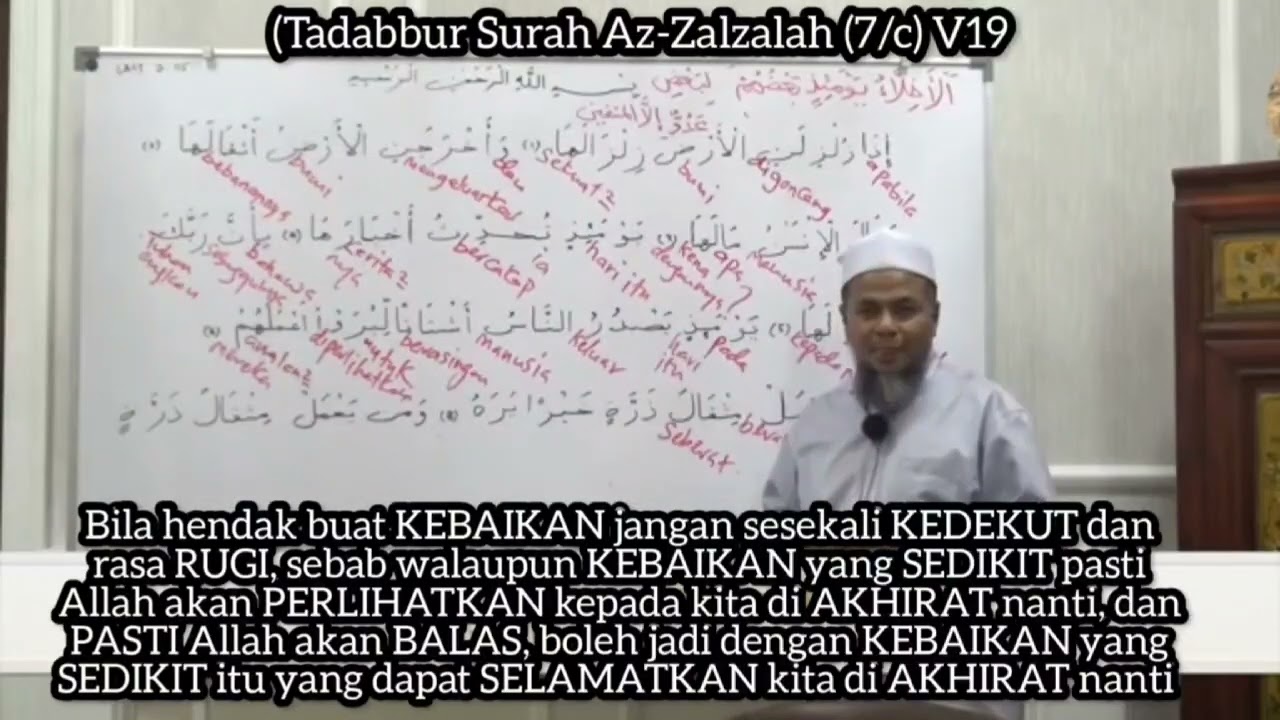 (Tadabbur Surah Az-Zalzalah (7/c) V19
الْأَخِلَّاءُ يَوْمَئِذٍ بَعْضُهُمْ لِبَعْضٍ
بِسْمِ اللَّهِ الرَّحْمَٰنِ الرَّحِيمِ
عَدُوٌّ إِلَّا الْمُتَّقِينَ
إِذَا زُلْزِلَتِ الْأَرْضُ زِلْزَالَهَا (١) وَأَخْرَجَتِ الْأَرْضُ أَثْقَالَهَا (٢)
apabila digoncang bumi bumi
الْإِنْسَٰنُ مَا لَهَا (٣) يَوْمَئِذٍ تُحَدِّثُ أَخْبَارَهَا (٤) بِأَنَّ رَبَّكَ
manusia apa kena dengannya? hari itu ia bercakap cerita2 nya bahawa Tuhan
لَهَا (٥) يَوْمَئِذٍ يَصْدُرُ النَّاسُ أَشْتَاتًا لِّيُرَوْا أَعْمَٰلَهُمْ (٦)
pada hari itu keluar manusia berasingan untuk diperlihatkan amalan2 mereka
مِثْقَالَ ذَرَّةٍ خَيْرًا يَرَهُ (٧) وَمَن يَعْمَلْ مِثْقَالَ ذَرَّةٍ
seberat
Bila hendak buat KEBAIKAN jangan sesekali KEDEKUT dan
rasa RUGI, sebab walaupun KEBAIKAN yang SEDIKIT pasti
Allah akan PERLIHATKAN kepada kita di AKHIRAT nanti, dan
PASTI Allah akan BALAS, boleh jadi dengan KEBAIKAN yang
SEDIKIT itu yang dapat SELAMATKAN kita di AKHIRAT nanti